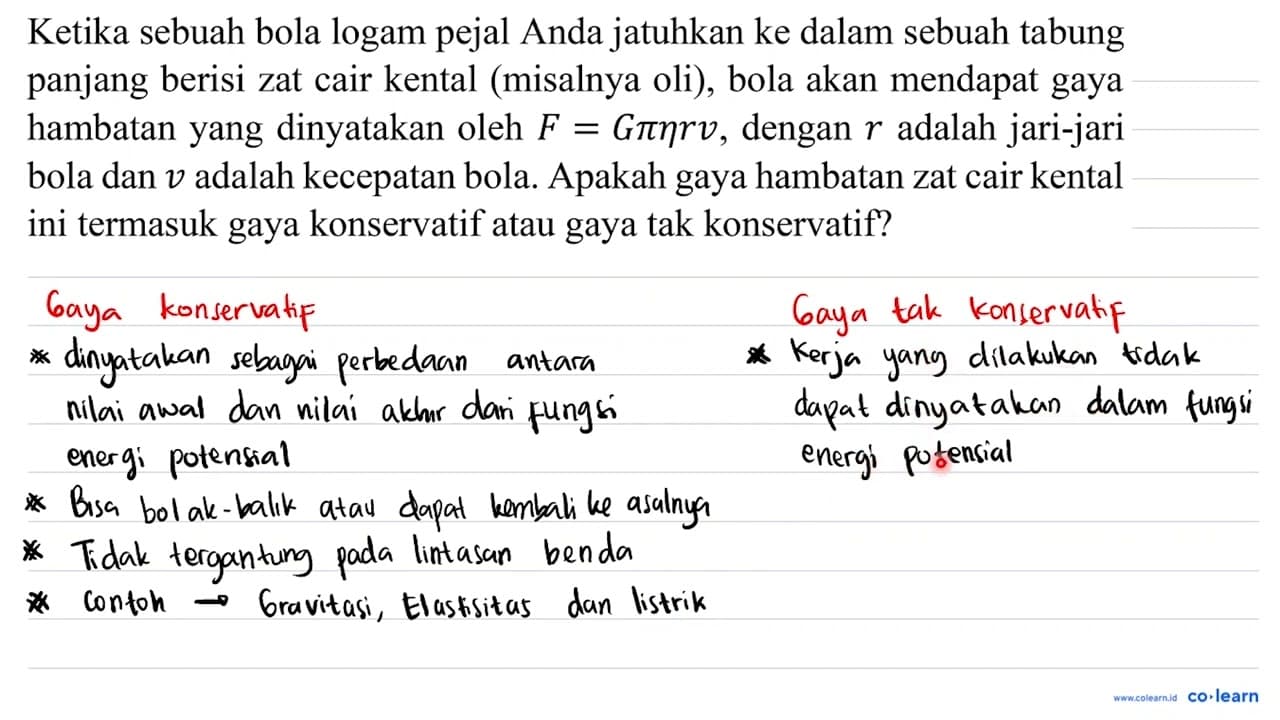 Ketika sebuah bola logam pejal Anda jatuhkan ke dalam sebuah tabung
panjang berisi zat cair kental (misalnya oli), bola akan mendapat gaya
hambatan yang dinyatakan oleh F = Gπηrv, dengan r adalah jari-jari
bola dan v adalah kecepatan bola. Apakah gaya hambatan zat cair kental
ini termasuk gaya konservatif atau gaya tak konservatif?
Gaya konservatif
* dinyatakan sebagai perbedaan antara
nilai awal dan nilai akhir dari fungsi
energi potensial
* Bisa bolak-balik atau dapat kembali ke asalnya
* Tidak tergantung pada lintasan benda
* Contoh → Gravitasi, Elastisitas dan listrik
Gaya tak konservatif
* Kerja yang dilakukan tidak
dapat dinyatakan dalam fungsi
energi potensial
www.colearn.id co·learn